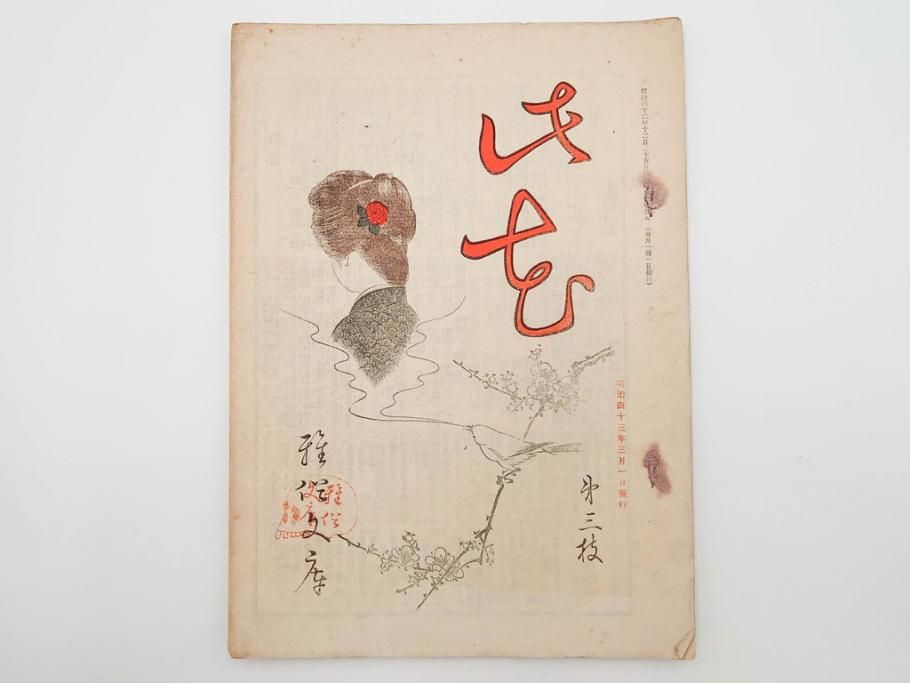 明治四十二年十二月二十五日
(毎月一回一日發行)
此花
明治四十三年三月一日發行
第三枝
雅俗文庫
雅俗
文庫